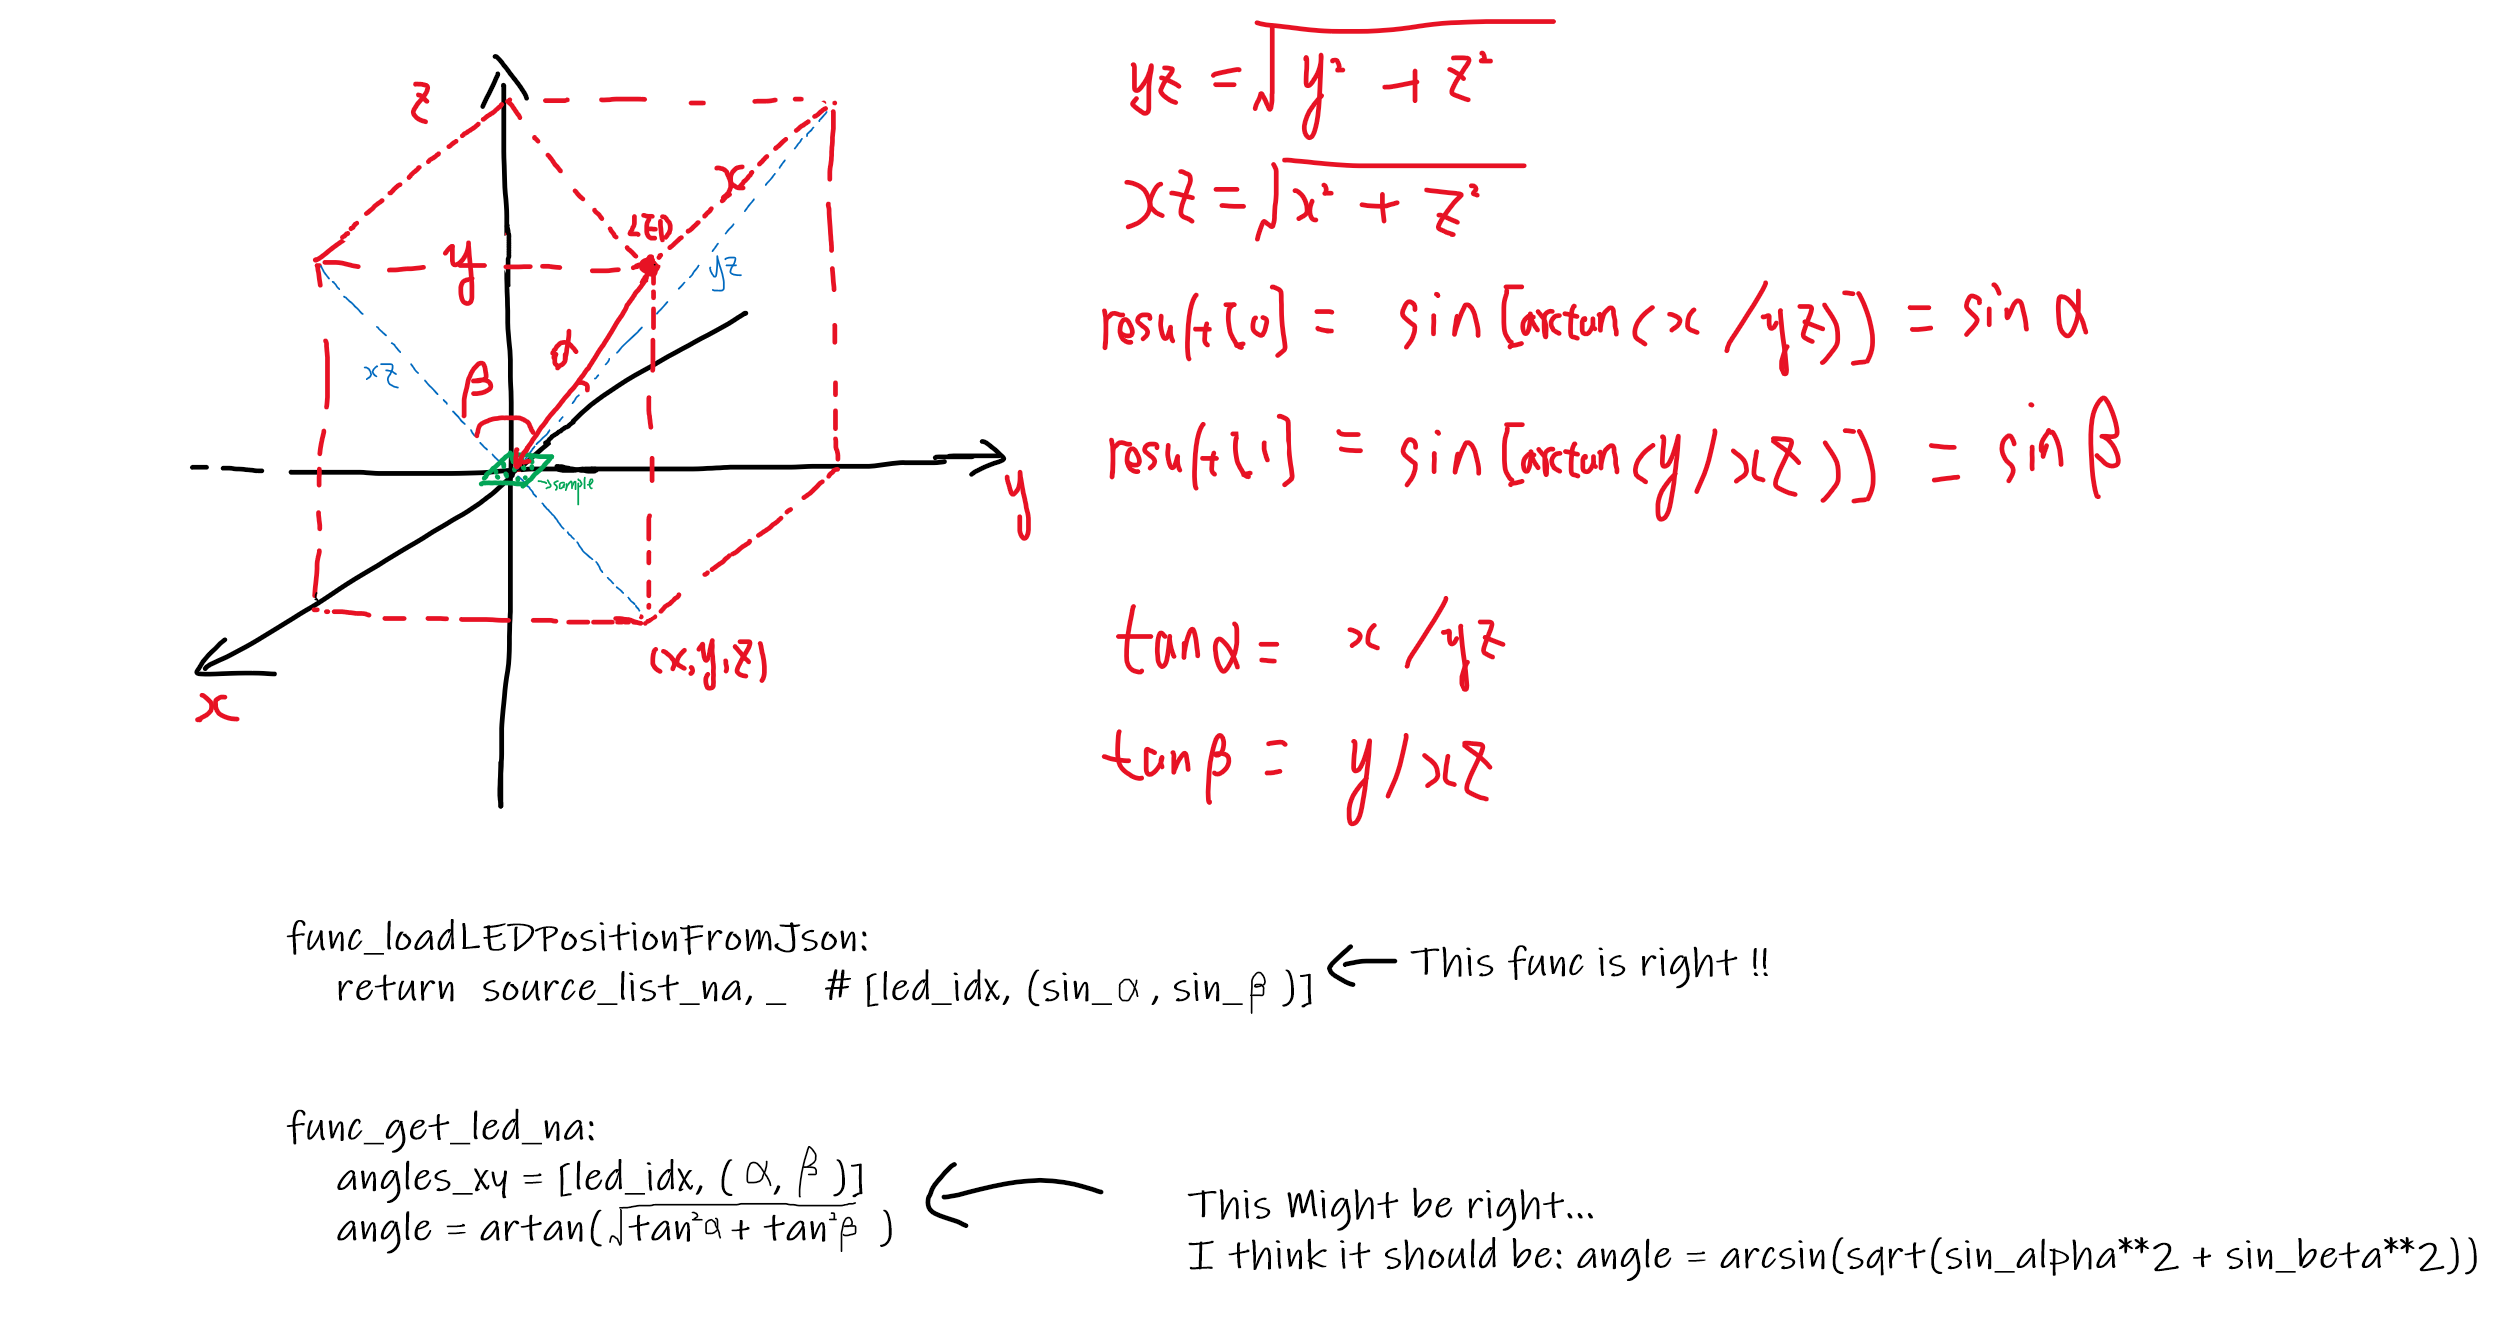 z
x
LED
y
yz
xz
α
β
→sample
y
x
(x,y,z)
yz = √y² + z²
xz = √x² + z²
result[0] = sin[arctan(x/yz)] = sin α
result[1] = sin[arctan(y/xz)] = sin β
tanα = x/yz
tanβ = y/xz
func_loadLEDPositionFromJson:
return source_list_na, _ # [led_idx, (sin_α, sin_β)]
This func is right !!
func_get_led_na:
angles_xy = [led_idx, (α, β)]
angle = artan(√tan²α + tan²β )
This Might be right...
I think it should be: angle = arcsin(sqrt(sin_alpha**2 + sin_beta**2))